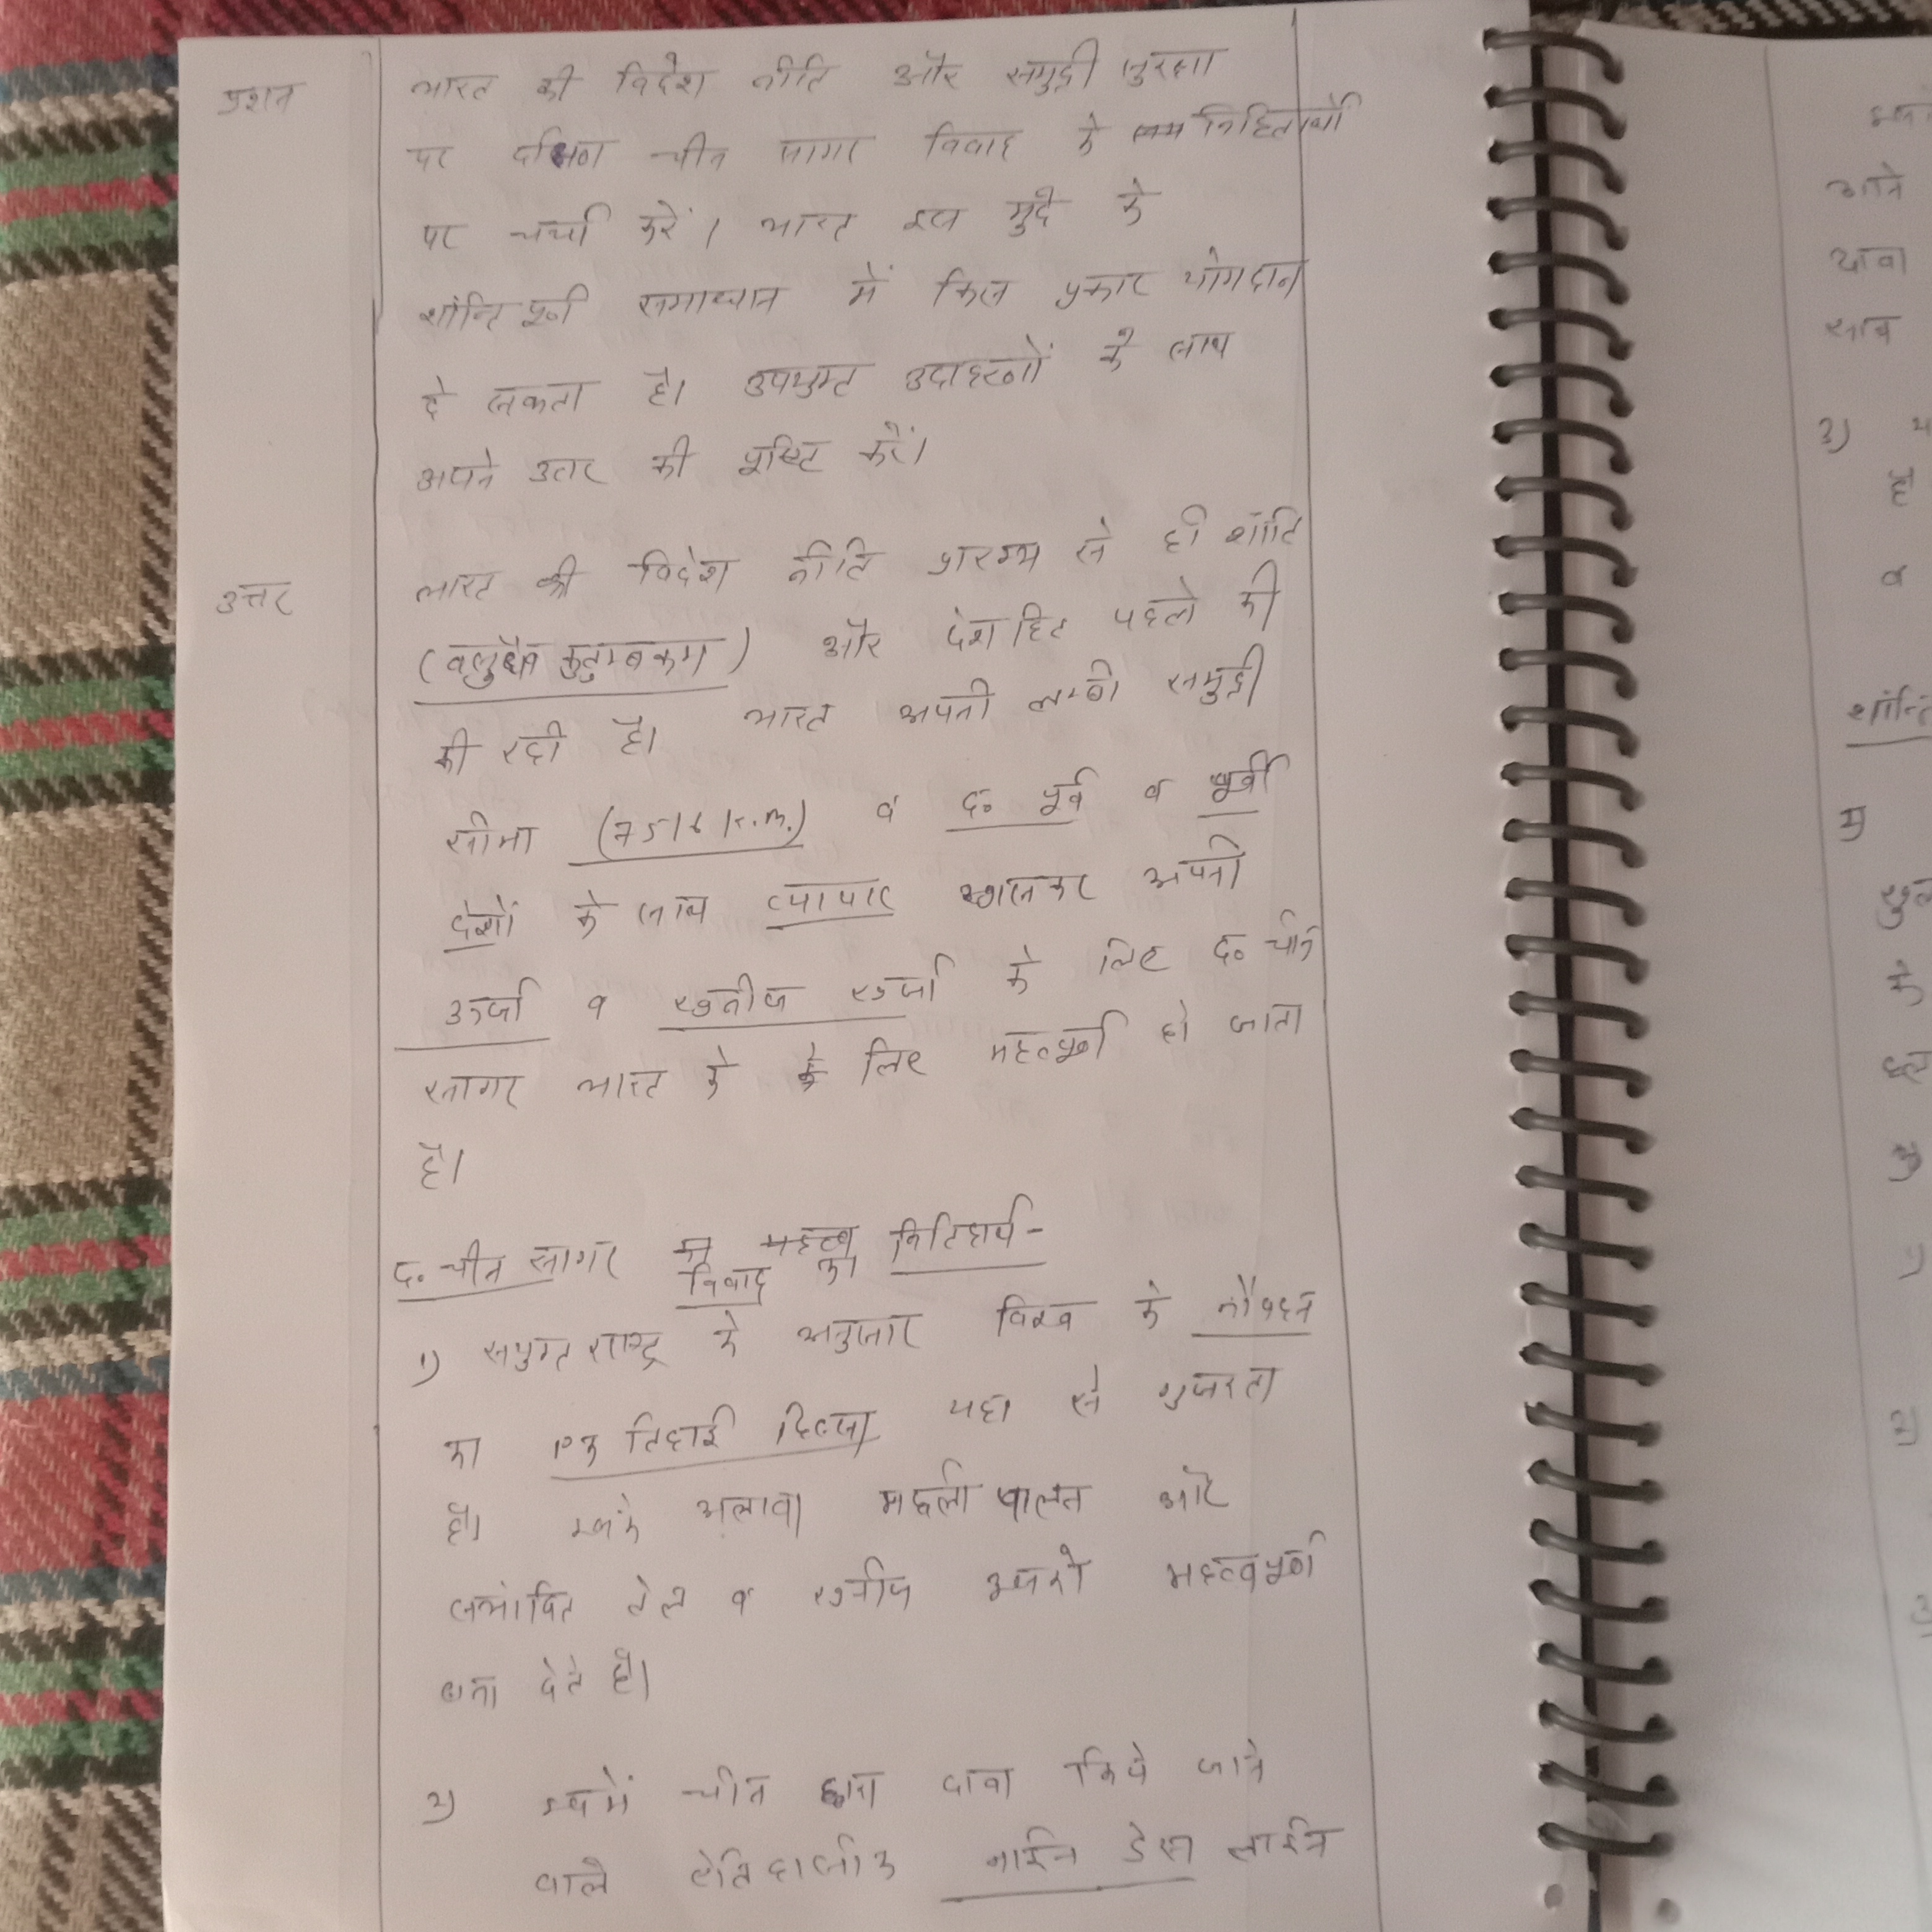 प्रशन
भारत की विदेश नीति और समुद्री सुरक्षा
पर दक्षिण चीन सागर विवाद के निहितार्थो
पर चर्चा करें। भारत इस मुद्दे के
शान्ति पूर्ण समाधान में किस प्रकार योगदान
दे सकता है। उपयुक्त उदाहरणों के साथ
अपने उतर की पुष्टि करें।
उत्तर
भारत की विदेश नीति प्रारम्भ से ही शांति
(वसुधैव कुटुम्बकम) और देशहित पहले की
की रही है। भारत अपनी लम्बी समुद्री
सीमा (7516 k.m.) व द० पूर्व व पूर्वी
देशों के साथ व्यापार अपनी
ऊर्जा व खनीज ऊर्जा के लिए द० चीन
सागर भारत के के लिए महत्वपूर्ण हो जाता
है।
द० चीन सागर विवाद का निहितार्थ-
1) सयुक्त राष्ट्र के अनुसार विश्व के नौवहन
का एक तिहाई हिस्सा यहा से गुजरता
है। इसके अलावा मछली पालन और
संभावित तेल व खनीज इसको महत्वपूर्ण
बना देते है।
2) इसमें चीन द्वारा दावा किये जाने
वाले ऐतिहासीक नाईन डेस लाईन
शान्ति
3)
है
व